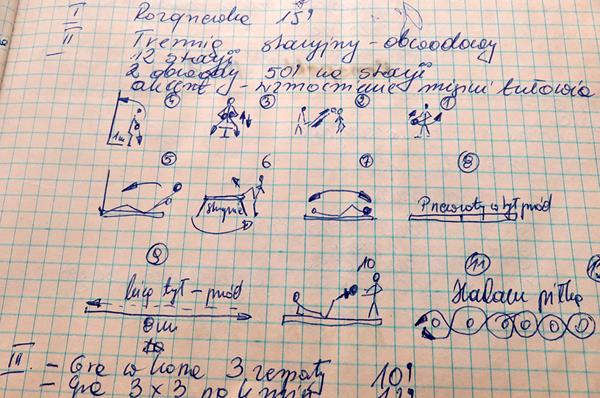 I Rozgrzewka 15'
II Trening stacyjny - obwodowy
12 stacji
2 obwody 50' na stacji
akcent - wzmocnienie mięśni tułowia
4 3 2 1
1m
5 6 7 8
skrzynia
Przewroty w tył przód
9 10 11
bieg tył - przód
8m
piłką
III - Gra w 3 zespoły 10'
- Gra 3x3 na